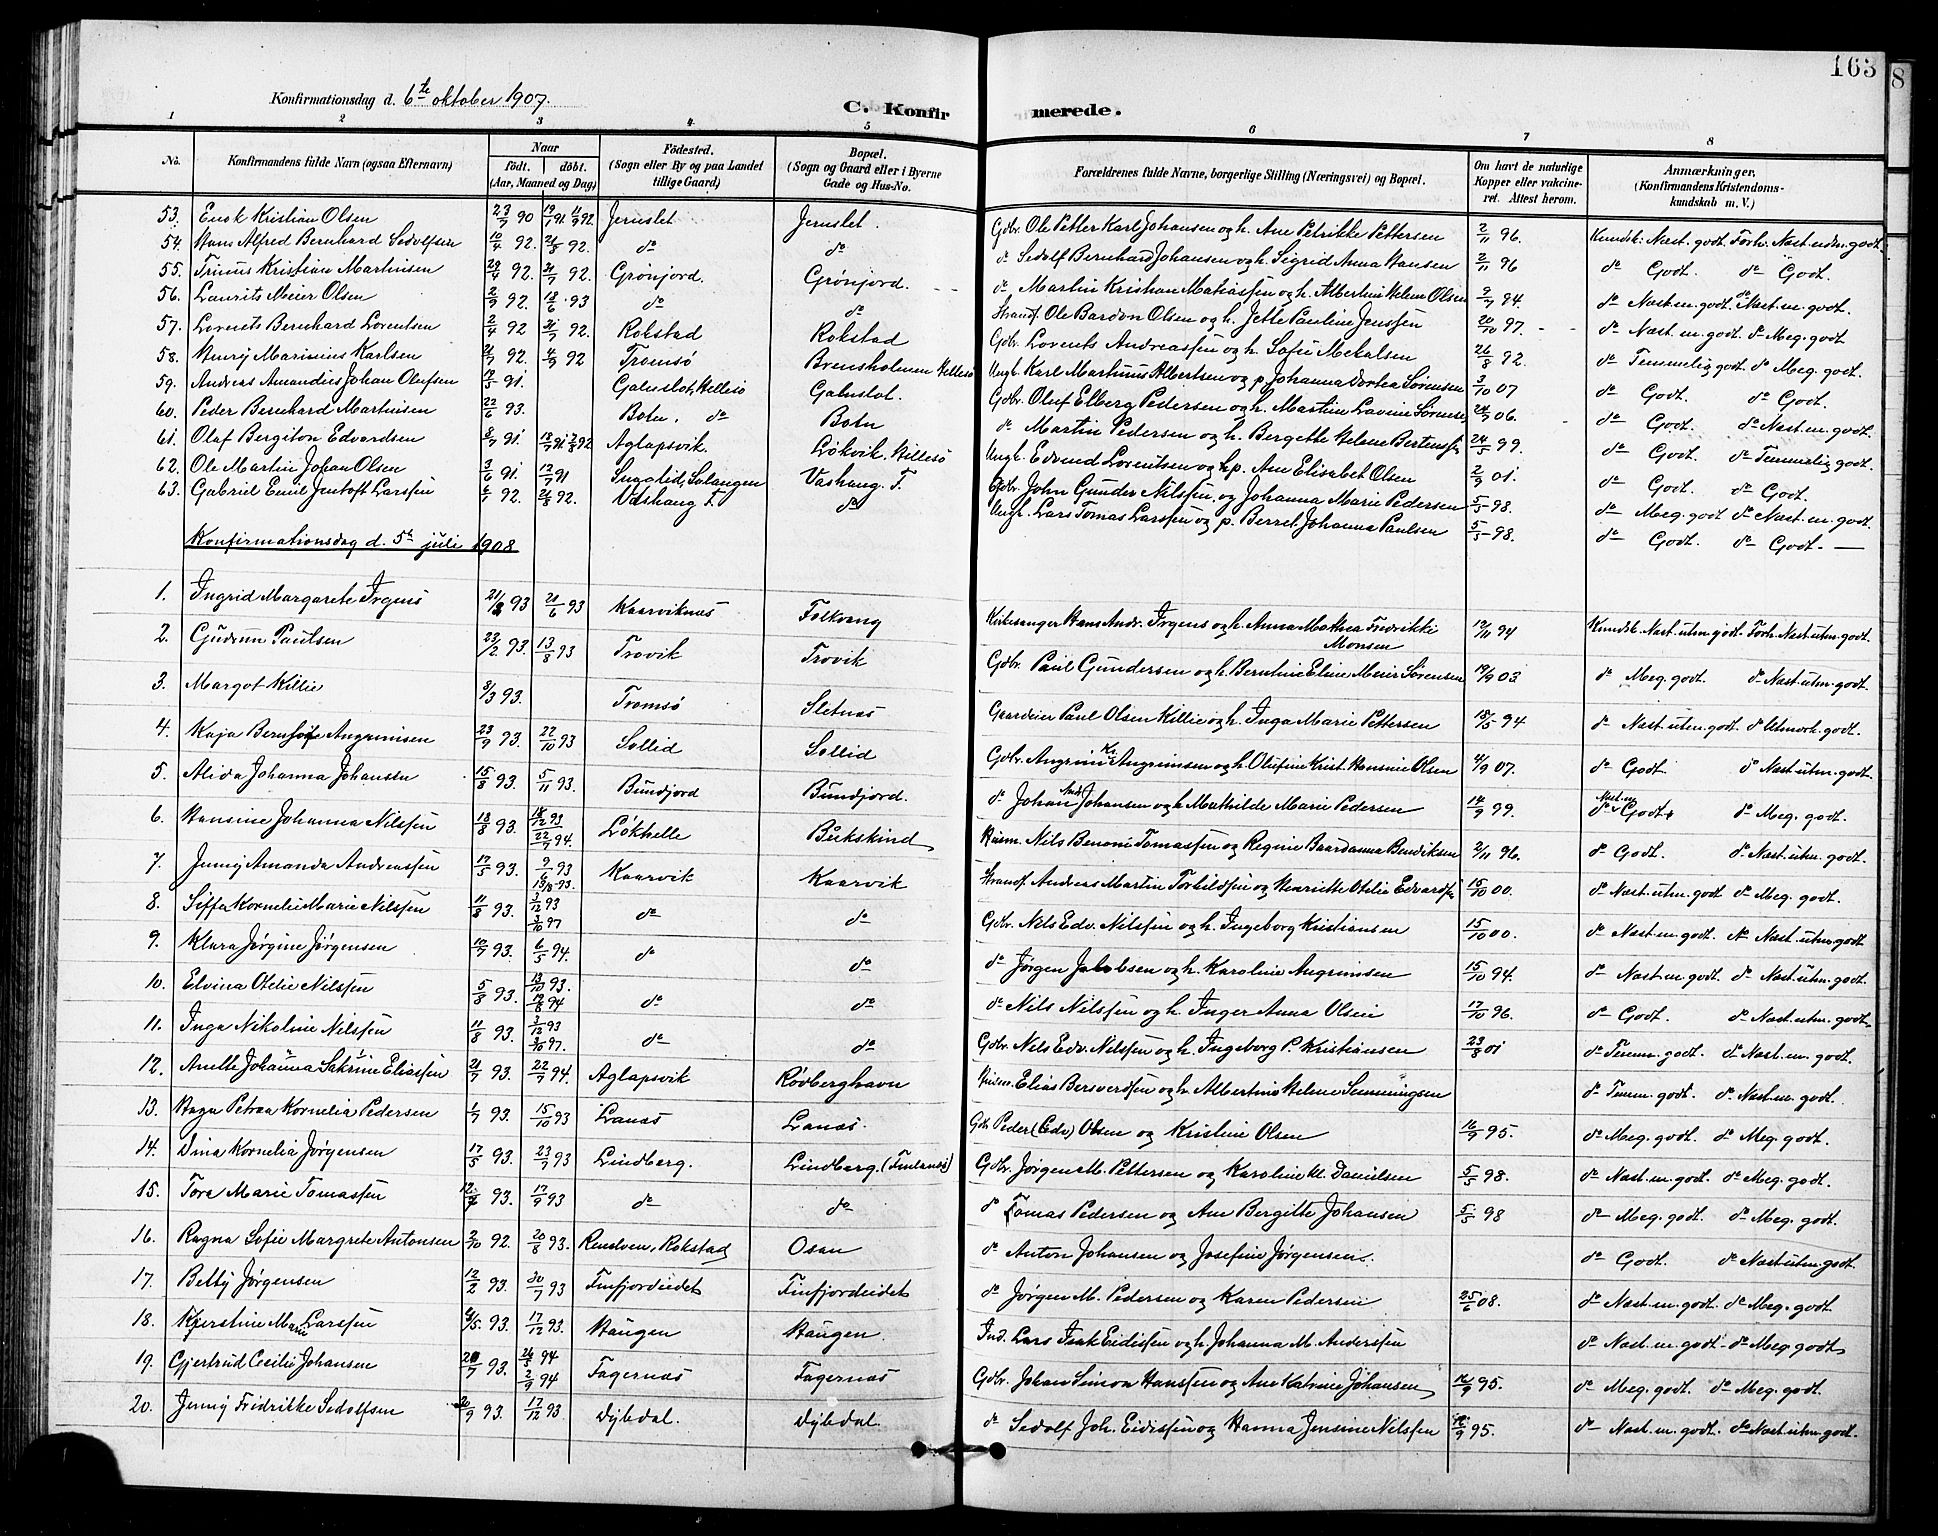 163
8
Konfirmationsdag d. 6te oktober 1907.
C. Konfirmerede.
1 2 3 4 5 6 7 8
No.
Konfirmandens fulde Navn (ogsaa Efternavn)
Naar
födt. döbt.
(Aar, Maaned og Dag)
Födested.
(Sogn eller By og paa Landet
tillige Gaard)
Bopæl.
(Sogn og Gaard eller i Byerne
Gade og Hus-No.
Forældrenes fulde Navne, borgerlige Stilling (Næringsvei) og Bopæl.
Om havt de naturlige
Kopper eller vakcine-
ret. Attest herom.
Anmærkninger,
(Konfirmandens Kristendoms-
kundskab m. V.)
53. Enok Kristian Olsen 23/7 90 19/7 91 11/9 92. Jernslet Jernslet. Gdbr. Ole Petter Karl Johansen og h. Ane Petrikke Pettersen 2/11 96. Kundsk: Næst. godt. Forh. Næst. udm. godt.
54. Hans Alfred Bernhard Sedolfsen 10/4 92. 21/8 92. do do do Sedolf Bernhard Johansen og h. Sigrid Anna Hansen 2/11 96 do Godt. do Godt.
55. Trinus Kristian Martinsen 29/4 92. 31/7 92. Grønjord. Grønjord. do Martin Kristian Matiassen og h. Albertine Helene Olsen 9/7 94. do Næst m. godt. do Næst. m. godt.
56. Laurits Meier Olsen 2/9 92. 18/6 93 do do Strands. Ole Bardon Olsen og h. Jette Pauline Jenssen 20/10 97. do Næst. m. godt. do Meg. godt
57. Lorents Bernhard Lorentsen 2/4 92 31/7 92. Rokstad Rokstad Gdbr. Lorents Andreassen og h. Sofie Mekalsen 26/8 92. do Temmelig godt. do Meg. godt.
58. Henry Marinius Karlsen 21/7 92. 4/9 92 Tromsø Brensholmen Hillesø Ungk. Karl Martinus Albertsen og p. Johanna Dortea Sørensen 3/10 07 do Godt. do Godt.
59. Andreas Amandus Johan Olufsen 19/5 91. Galnslot, Hillesø Galnslot. Gdbr. Oluf Elberg Pedersen og h. Martine Lavine Sørensen 06. do Godt. do Næst. m. godt.
60. Peder Bernhard Martinsen 22/6 93. Botn. do Botn do Martin Pedersen og h. Bergette Helene Berntsen 24/5 99. do Godt. do Temmelig godt.
61. Olaf Bergiton Edvardsen 8/7 91 92 Aglapsvik. Løkvik. Hillesø Ungk. Edvard Lorentsen og p. Ane Elisabet Olsen 2/9 01. do Godt. do Godt.
62. Ole Martin Johan Olsen 3/6 91. 12/7 91 Salangen Vashaug. T. Gdbr. John Gunder Nilssen, og Johanna Marie Pedersen 5/5 98. do Meg. godt do Næst. m. godt.
63. Gabriel Emil Jentoft Larssen 6/7 92. 21/8 92. Vashaug T. do Ungk. Lars Tomas Larssen og p. Berret Johanna Paulsen 5/5 98. do Godt. do Godt. —
Konfirmationsdag d. 5te juli 1908
1. Ingrid Margarete Irgens 21/3 93 20/6 93 Kaarviknes Folkvang Kirkesanger Hans Andr. Irgens og h. Anna Mathea Fredrikke Monsen 12/11 94 Kundsk. Næst. utm. godt. Forh. Næst. utm. godt.
2. Gudrun Paulsen 23/2 93. 13/8 93 Trovik Trovik Gdbr. Paul Gundersen og h. Berntine Eline Meier Sørensen 19/9 03 do Meg. godt. do Næst. utm. godt.
3. Margot Killie 3/3 93. Tromsø Sletnes Gaardeier Paul Olsen Killie og h. Inga Marie Pettersen 18/5 94 do Næst. utm. godt. do Utmerk. godt.
4. Kaja Angrimsen 23/9 93. 22/10 93 Sollid Sollid Gdbr. Angrim Kr. Angrimsen og h. Olufine Krist. Hansine Olsen 4/9 07. do Godt. do Næst. utm. godt.
5. Alida Johanna Johansen 15/8 93. 5/11 93. Bundjord Bundjord. do Johan Johansen og h. Mathilde Marie Pedersen 14/9 99. do Næst. m. Godt. do Meg. godt.
6. Hansine Johanna Nilssen 18/8 93. 18/12 93 22/7 94. Løkhelle Bukskind Husm. Nils Benoni Tomassen og Regine Baardanna Bendiksen 2/11 96. do Godt. do Næst. utm. godt.
7. Jenny Amanda Andreassen 17/5 93. 9/6 93 13/8 93. Kaarvik Kaarvik Strands. Andreas Martin Torkildsen og Henriette Otelie Edvardsen 15/10 00. do Næst. utm. godt do Meg. godt.
8. Siffa Kornelie Marie Nilssen 11/8 93. 3/12 93 3/10 97 do do Gdbr. Nils Edv. Nilssen og h. Ingeborg Kristiansen 15/10 00. do Næst. m. godt. do Næst. utm. godt
9. Klara Jørgine Jørgensen 10/7 93. 6/5 94. do do do Jørgen Jakobsen og h. Karoline Angrimsen 15/10 94. do Næst. m. godt. do Næst. utm. godt.
10. Elvina Otelie Nilssen 5/8 93. 13/10 93. 19/8 94 do do do Nils Nilssen og h. Inger Anna Olsen 17/10 96. do Godt. do Næst. utm. godt.
11. Inga Nikoline Nilssen 11/8 93. 3/12 93 3/10 97. do do Gdbr. Nils Edv. Nilssen og h. Ingeborg P. Kristiansen 23/8 01 do Temm. godt. do Næst. m. godt.
12. Anette Johanna Sakrine Eliassen 21/7 93. 22/7 94. Aglapsvik Rødberghavn Husm. Elias Bersverdsen og h. Albertine Helene Senningsen do Temm. godt. do Næst. m. godt.
13. Haga Petraa Kornelia Pedersen 1/7 93. 15/10 93 Lanes Lanes. Gdb. Peder (Edv) Olsen og Kristine Olsen 16/9 95. do Meg. godt. do Meg. godt.
14. Dina Kornelia Jørgensen 17/5 93. 23/7 93 Lindberg. Lindberg. (Finlanes) Gdbr. Jørgen M. Pettersen og Karoline Kl. Danielsen 5/5 98. do Næst. m. godt. do Meg. godt.
15. Tora Marie Tomassen 93. 17/9 93 do do do Tomas Pedersen og Ane Bergitte Johansen 5/5 98 do Meg. godt. do Meg. godt.
16. Ragna Sofie Margrete Antonsen 2/10 92. 20/8 93. Rendven, Rokstad Osan do Anton Johansen og Josefine Jørgensen. do Godt. do Næst. utm. godt.
17. Betty Jørgensen 12/2 93. 30/7 93 Finfjordeidet Finfjordeidet do Jørgen M. Pedersen og Karen Pedersen 25/6 08. do Næst. m. godt. do Meg. godt.
18. Kjerstine Marie Larssen 6/5 93. 17/12 93. Haugen Haugen. Ind. Lars Isak Eidissen og h. Johanna M. Anderssen do Næst. m. godt. do Meg. godt.
19. Gjertrud Cecilie Johansen 20/7 93. 26/5 94 2/9 94 Fagernes Fagernes Gdbr. Johan Simon Hanssen og Ane Katrine Johansen 16/9 95. do Meg. godt. do Meg. godt.
20. Jenny Fridrikke Sedolfsen 20/9 93. 17/12 93. Dybdal. Dybdal. do Sedolf Joh. Eidissen og Hanna Jensine Nilssen 16/9 95. do Næst. m. godt. do Næst. utm. godt.